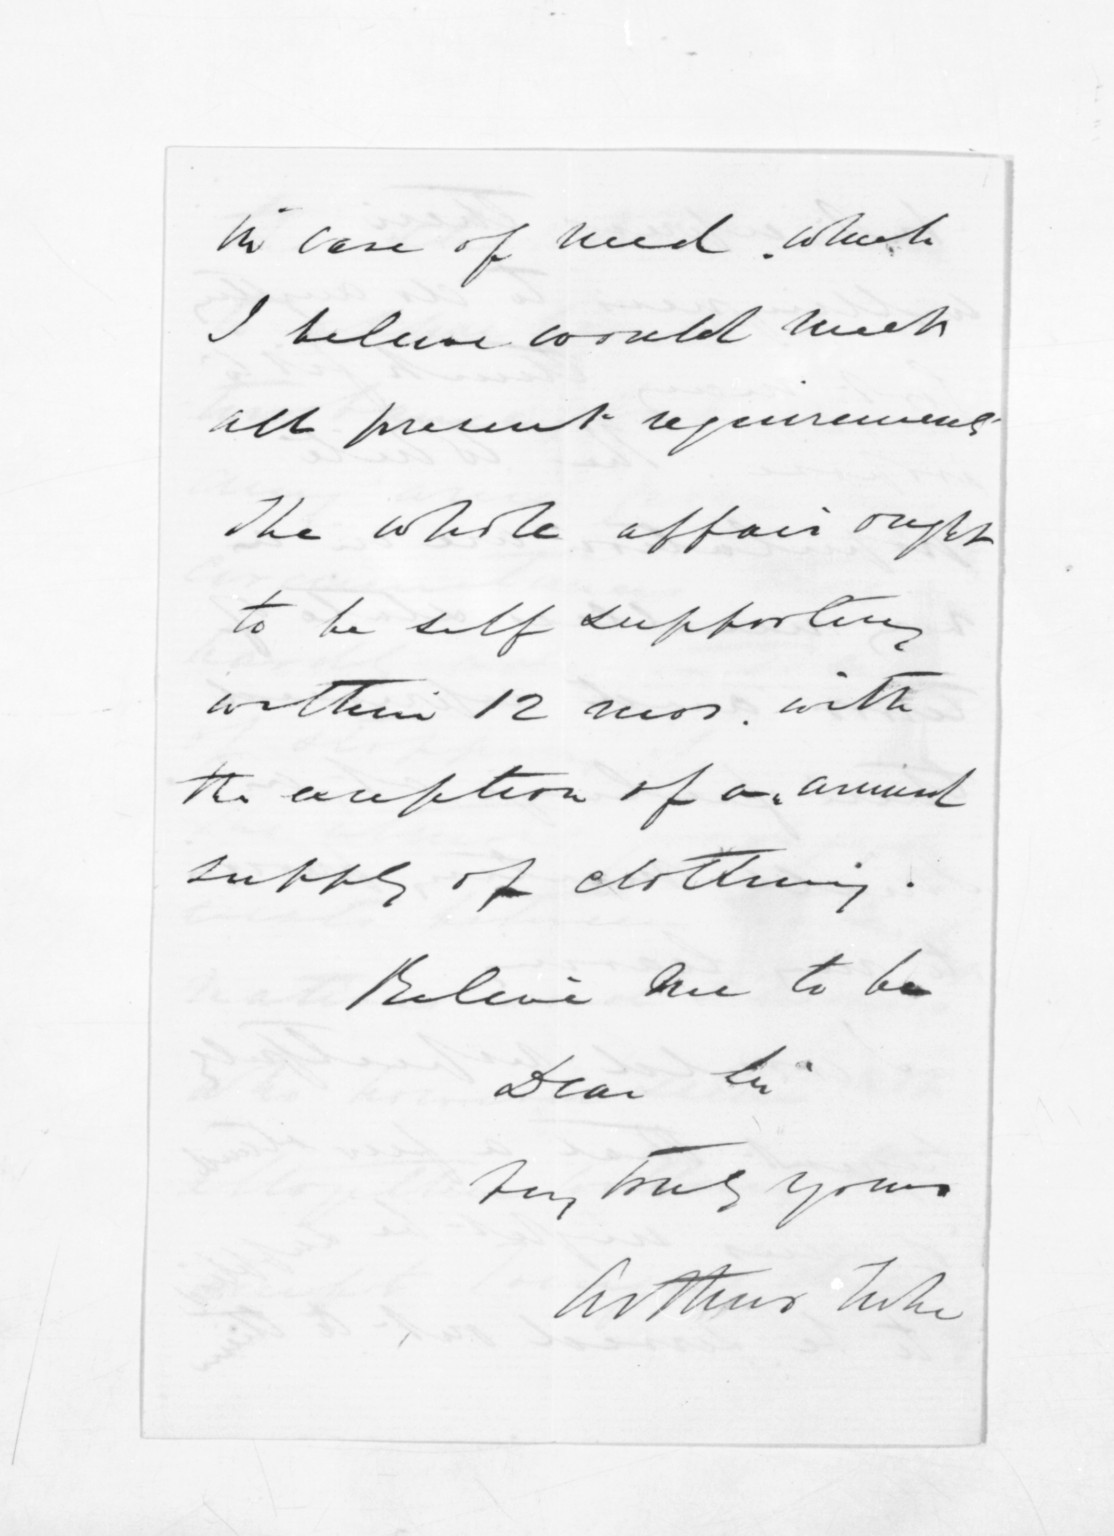 in case of need. which
I believe would meet
all present requirements
The whole affair ought
to be self supporting
within 12 mos. with
the exception of a annual
supply of clothing.
Believe me to be
Dear Sir
Very truly yours
Arthur Tuke